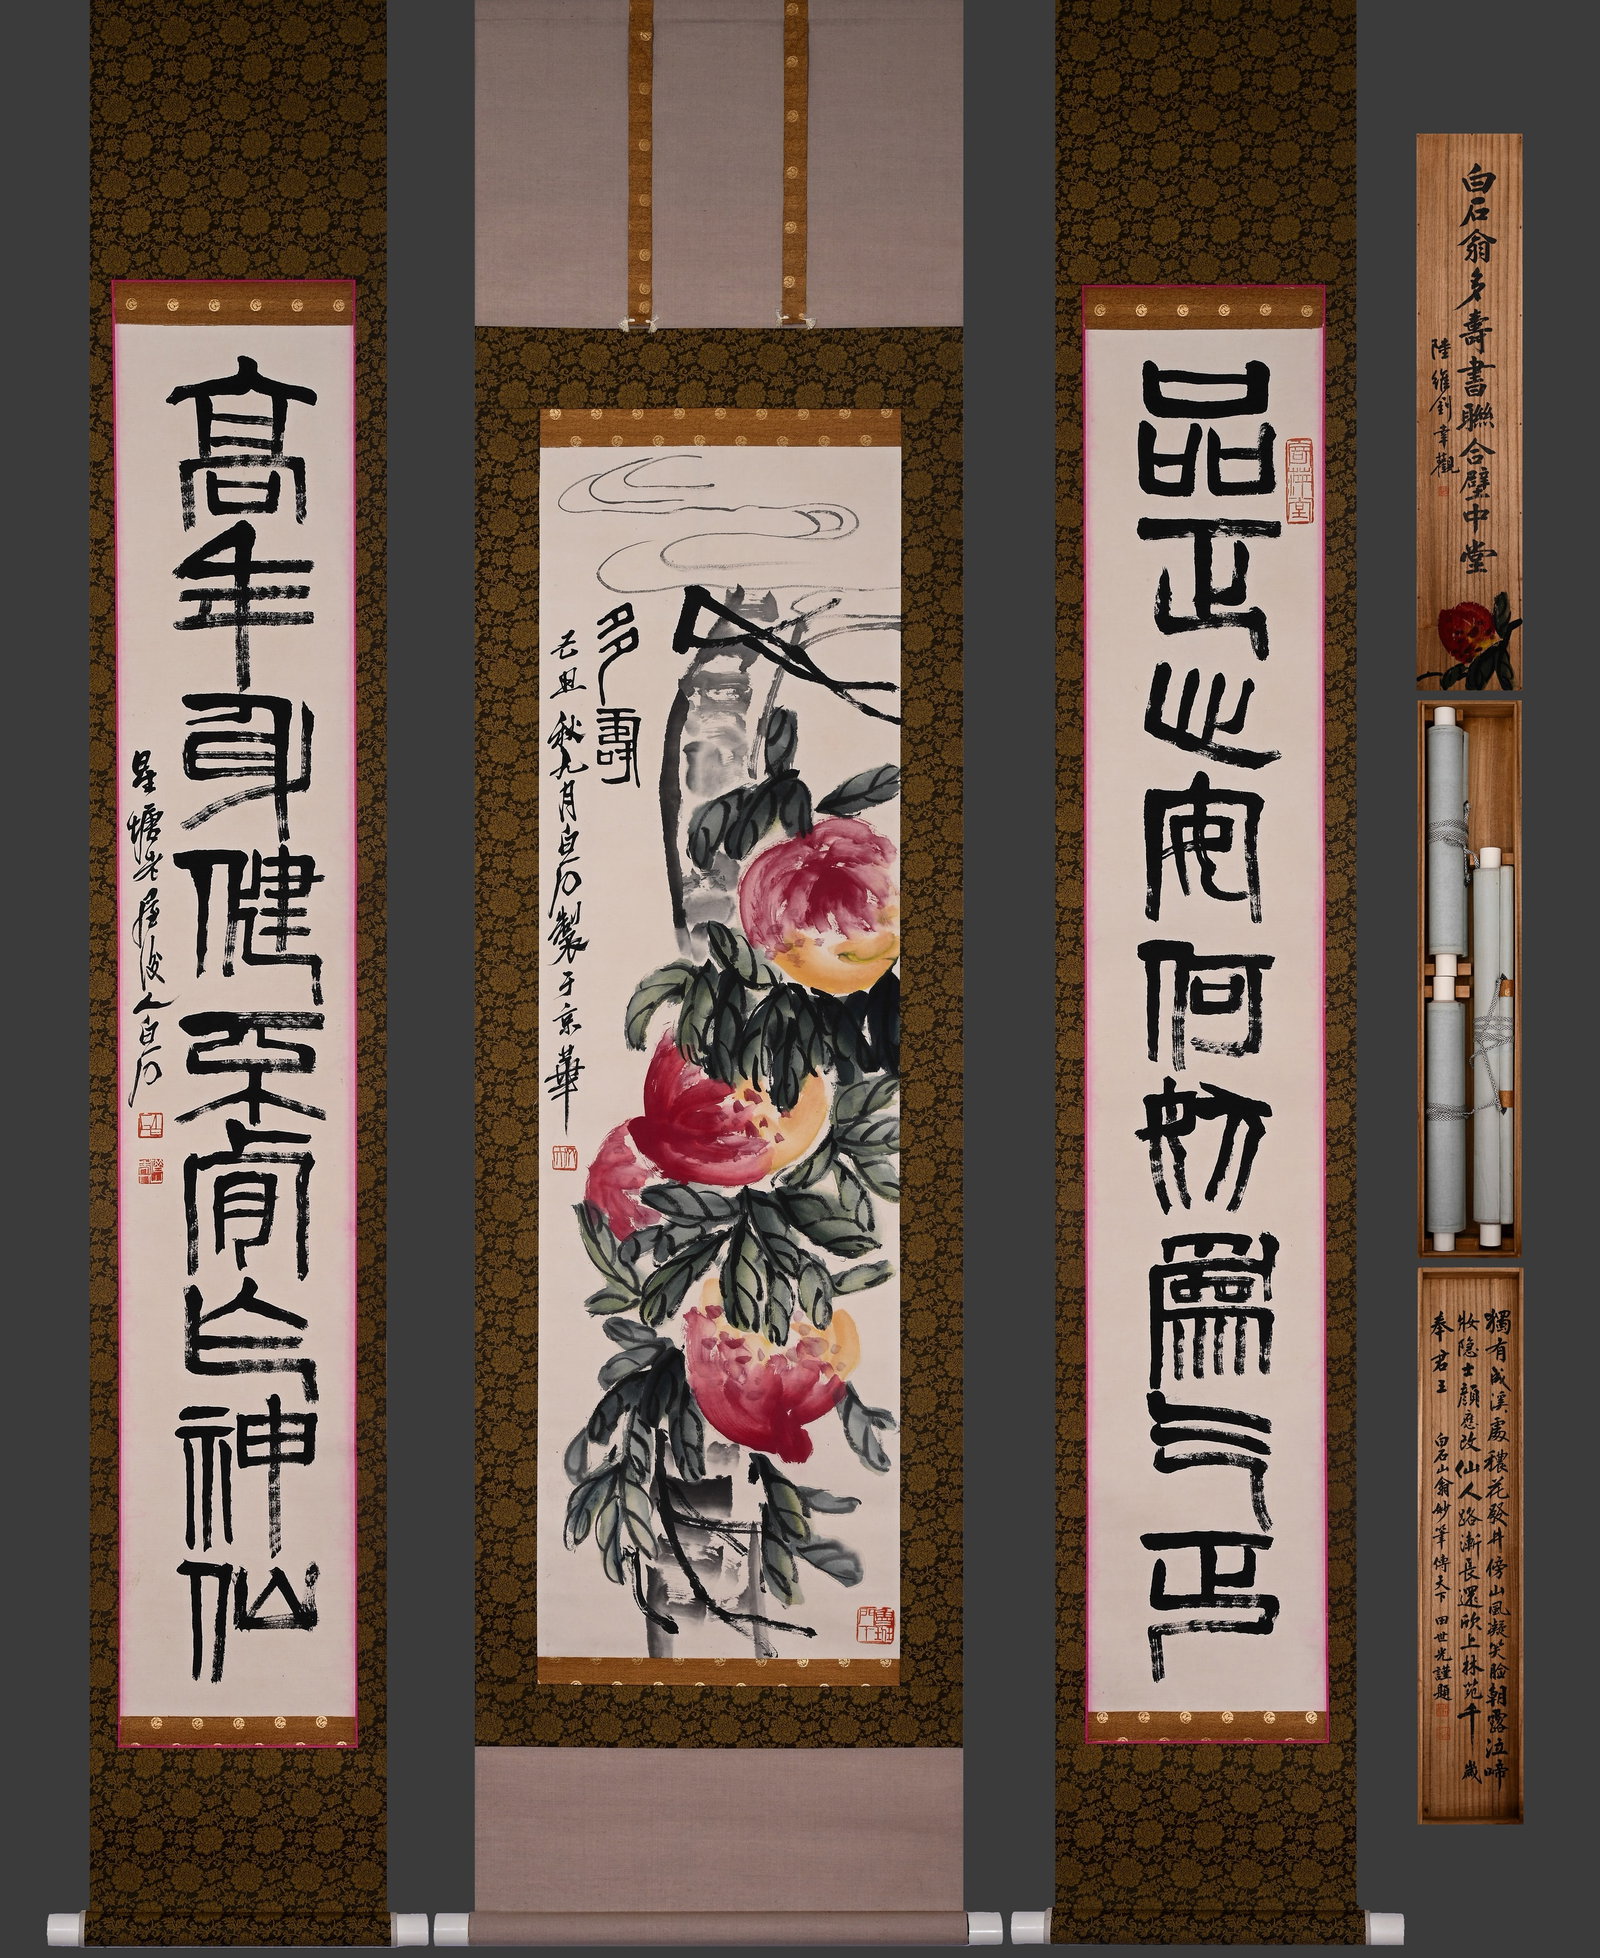 品正心安何妨爲乞丐
寄萍堂
多壽
丑秋九月白石製于京華
魯班門下
高年身健不肯作神仙
星塘老屋後人白石
白石翁多壽書聯合璧中堂
陸維釗幸觀
獨有成溪處穠花發井傍山風凝笑臉朝露泣啼
妝隱士顏應改仙人路漸長還欣上林苑千歲
奉君王
白石山翁妙筆傳天下田世光謹題